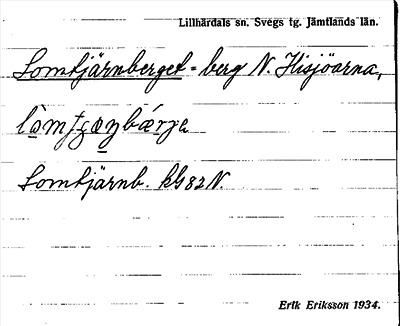 Lillhärdals sn. Svegs tg. Jämtlands län.
Lomtjärnberget = berg N. Hisjöarna,
Lomtjärnb. kG82N.
Erik Eriksson 1934.